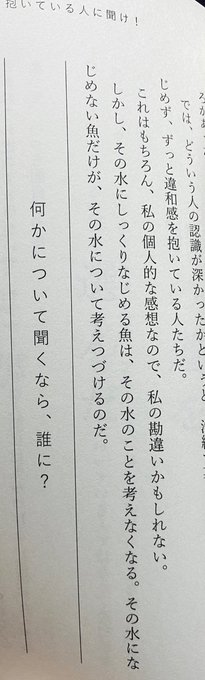 では、どういう人の認識が深かったかというと
じめず、ずっと違和感を抱いている人たちだ。
これはもちろん、私の個人的な感想なので、私の勘違いかもしれない。
しかし、その水にしっくりなじめる魚は、その水のことを考えなくなる。その水にな
じめない魚だけが、その水について考えつづけるのだ。
何かについて聞くなら、誰に？
抱いている人に聞け！